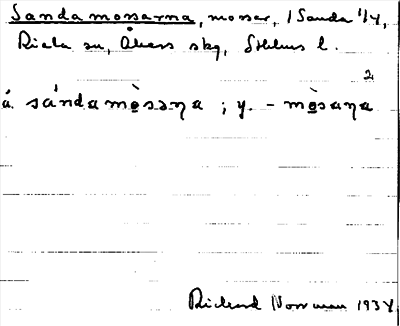 Sandamossarna, mossar, 1 Sanda 1/4,
Ricla sn, Åkers skg, Sthlms l.
2
å. sándamòssɳa ; y. - mòsaɳa
Rickard Norrman 1934